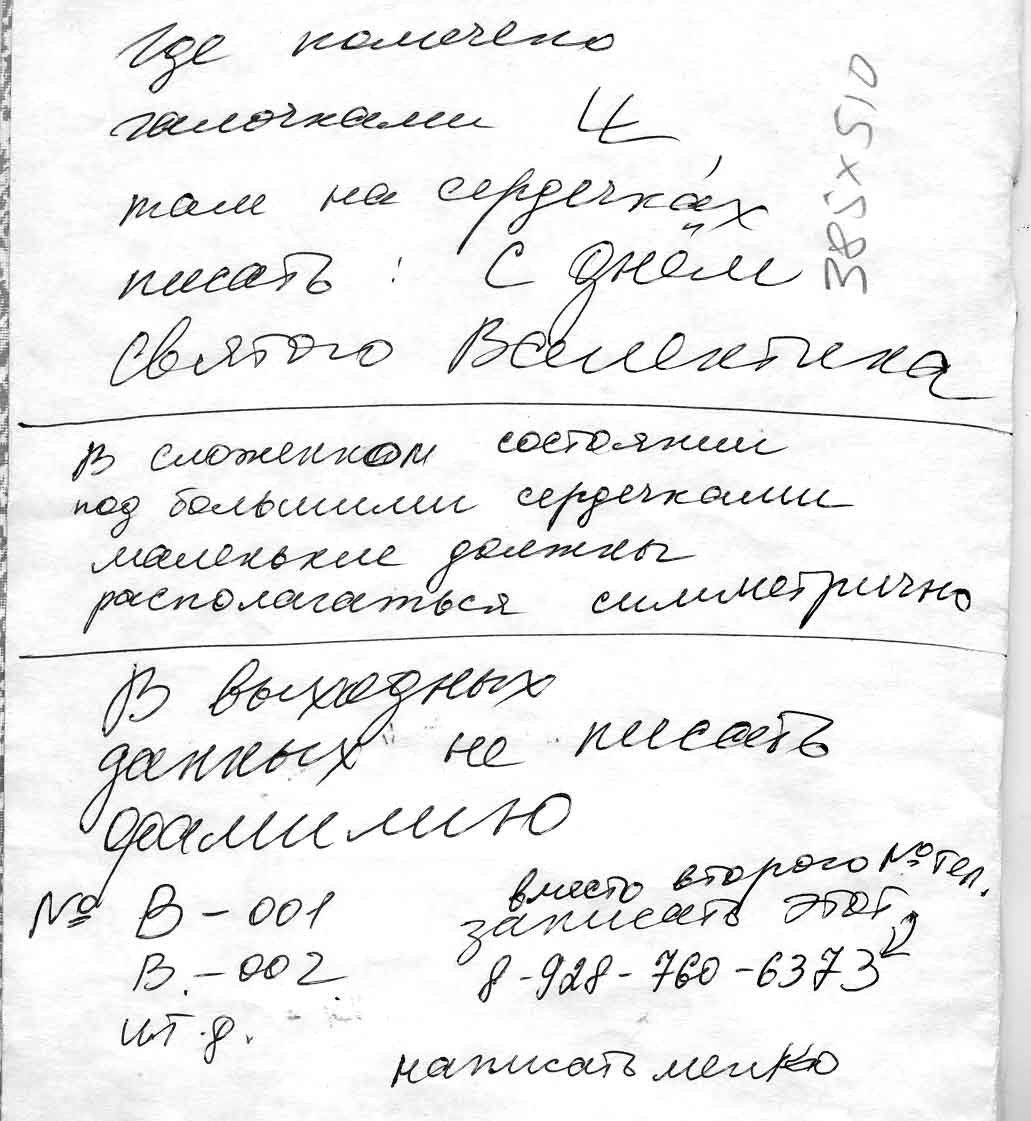 Где помечено
галочками
там на сердечка́х
писать: С днём
святого Валентина
385×510
В сложенном состоянии
под большими сердечками
маленькие должны
располагаться симметрично
В выходных
данных не писать
фамилию
№ В-001
В.-002
и т.д.
вместо второго № тел.
записать этот
8-928-760-6373
написать мелко